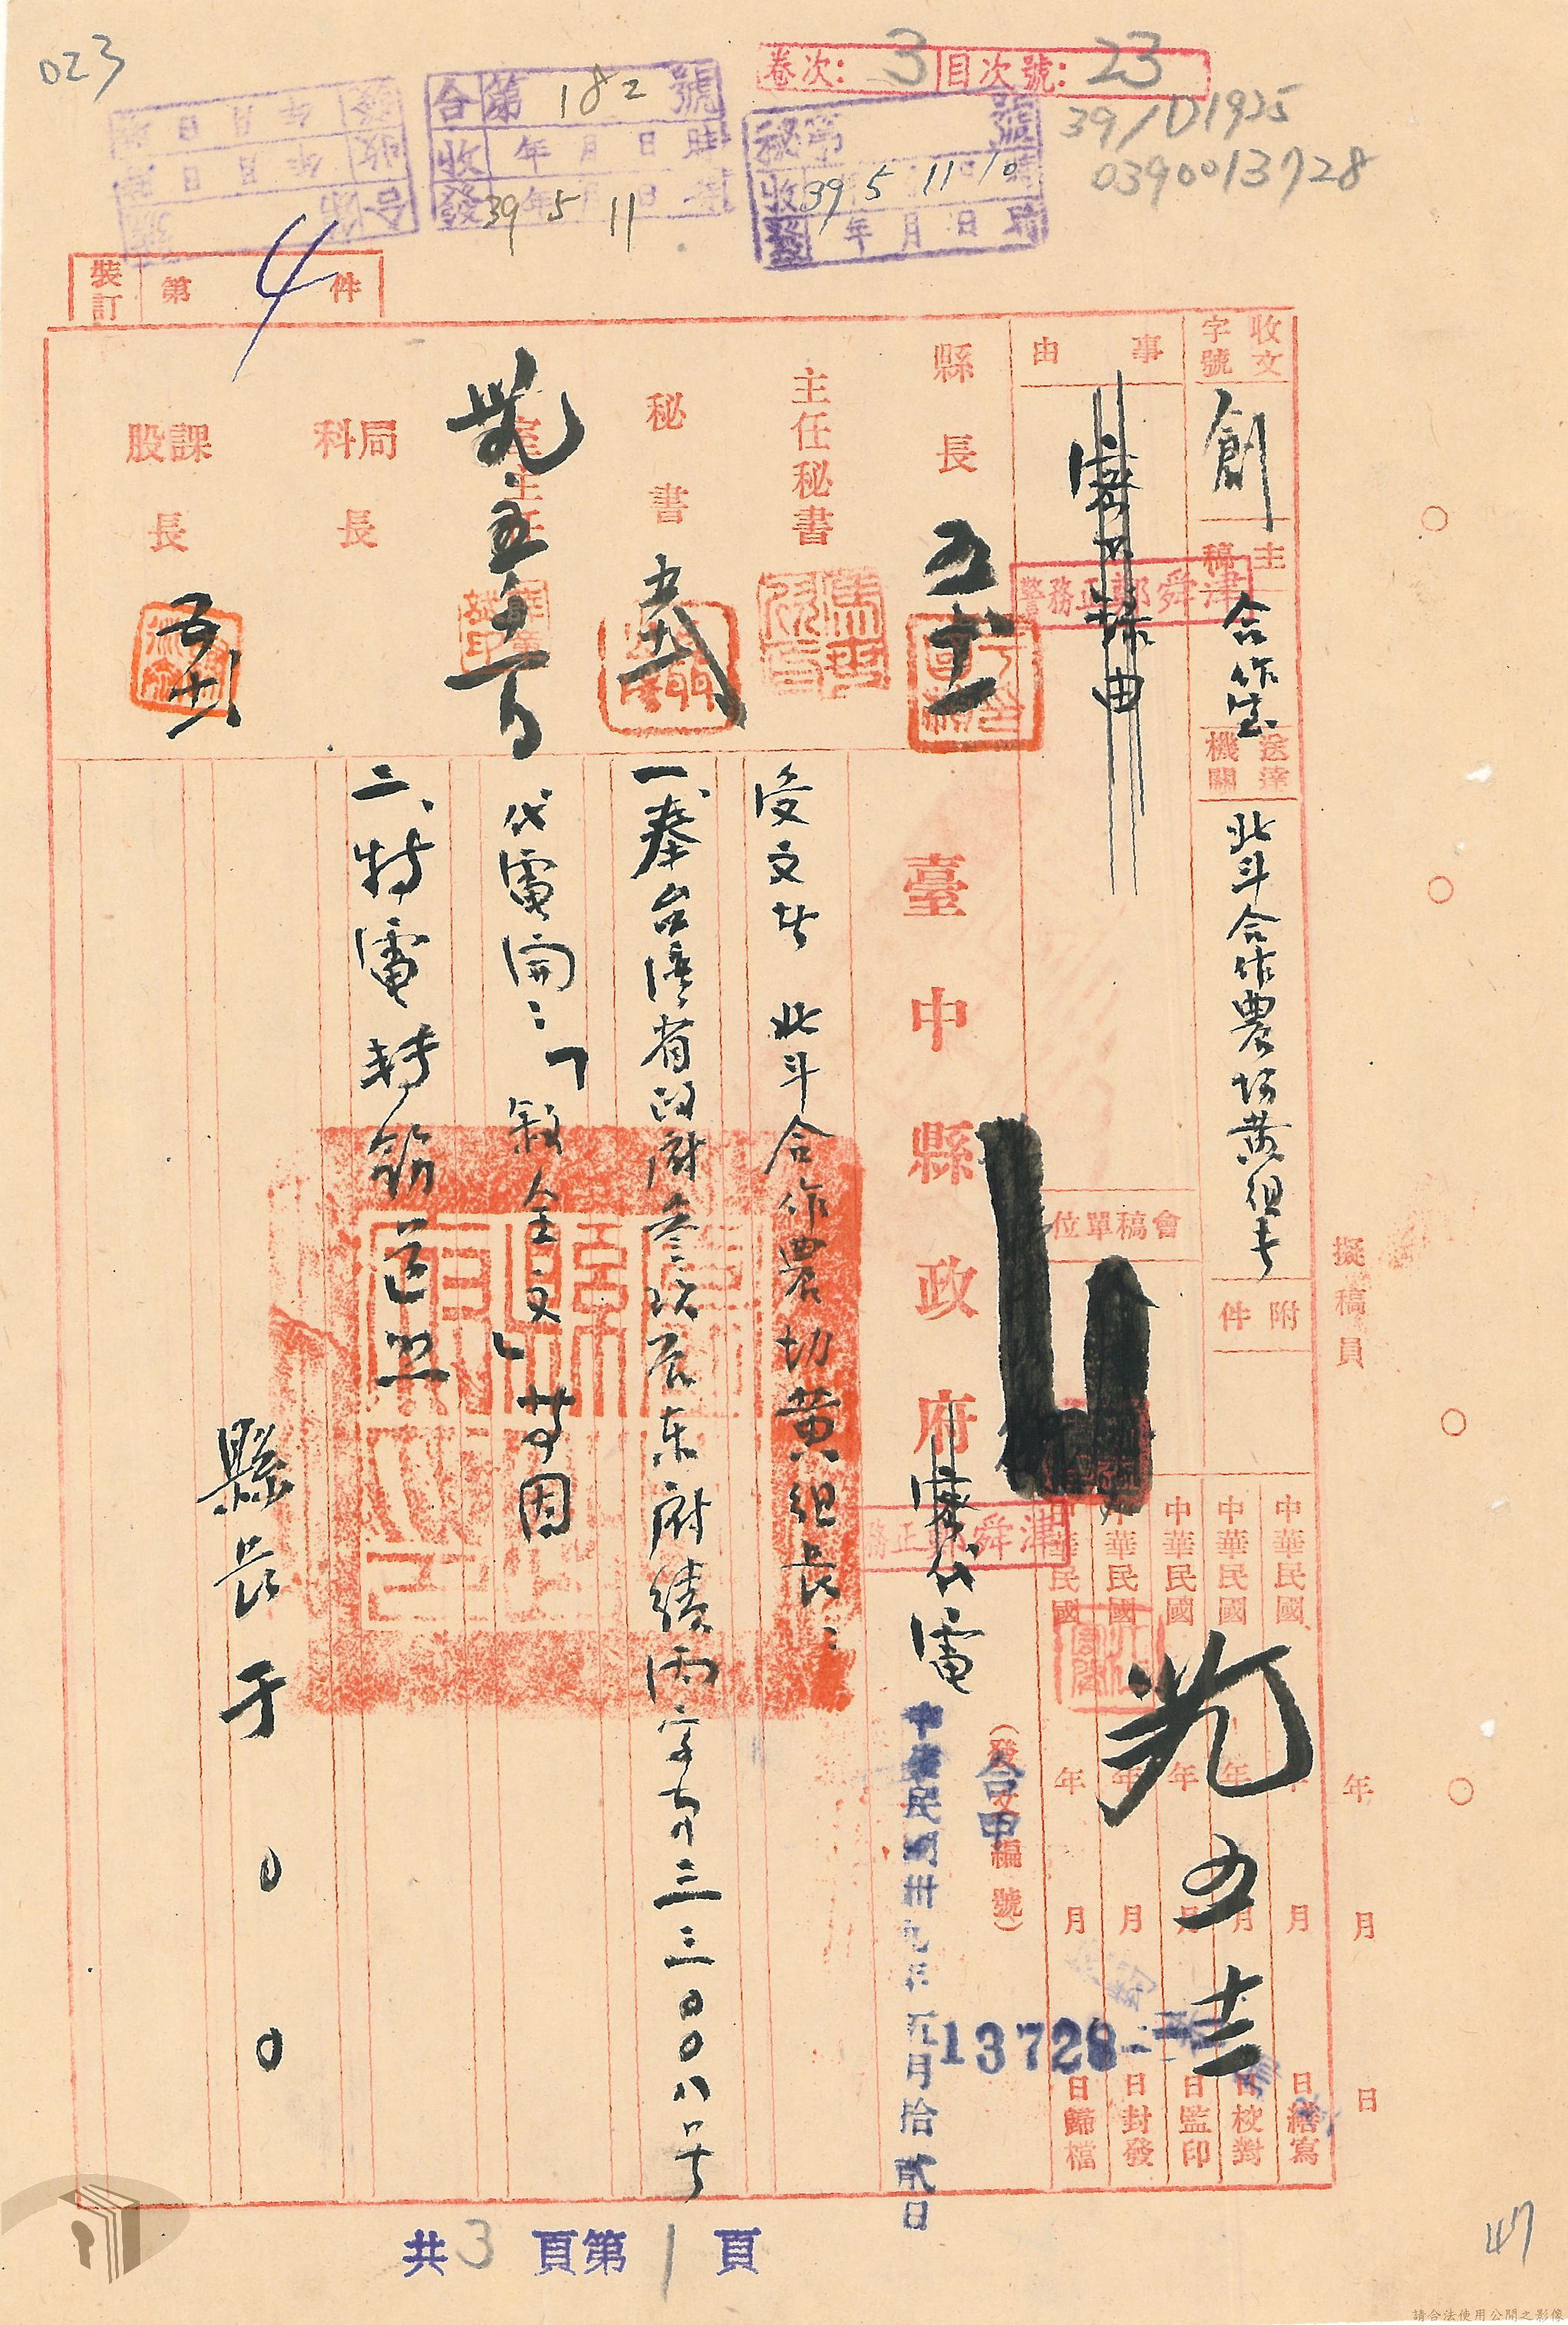 023
卷次：3 目次號：23
39/D1925
0390013728
合第182號
收 年月日時
發 39年5月11日時
秘第 號
收 39 5 11 10時
發 年月日時
裝訂 第4件
收文字號 創
主稿 合作室
送達機關 北斗合作農場黃組長
附件
擬稿員 年月日
事由
會稿單位
縣長 五 十一
主任秘書
秘書
室主任
局科長
課股長
中華民國 年 月 日繕寫
中華民國 年 月 日校對
中華民國 年 月 日監印
中華民國 年 月 日封發
中華民國 年 月 日歸檔
臺中縣政府 代電
(發文編號)
合甲
13728
中華民國卅九年五月拾貳日
受文者 北斗合作農切黃組長：
一、奉台灣省政府叁玖辰東府績丙字第三三〇〇八号
代電開：「敘全文」等因
二、特電轉飭遵照
縣長于〇〇
共3頁第1頁
47
請合法使用公開之影像